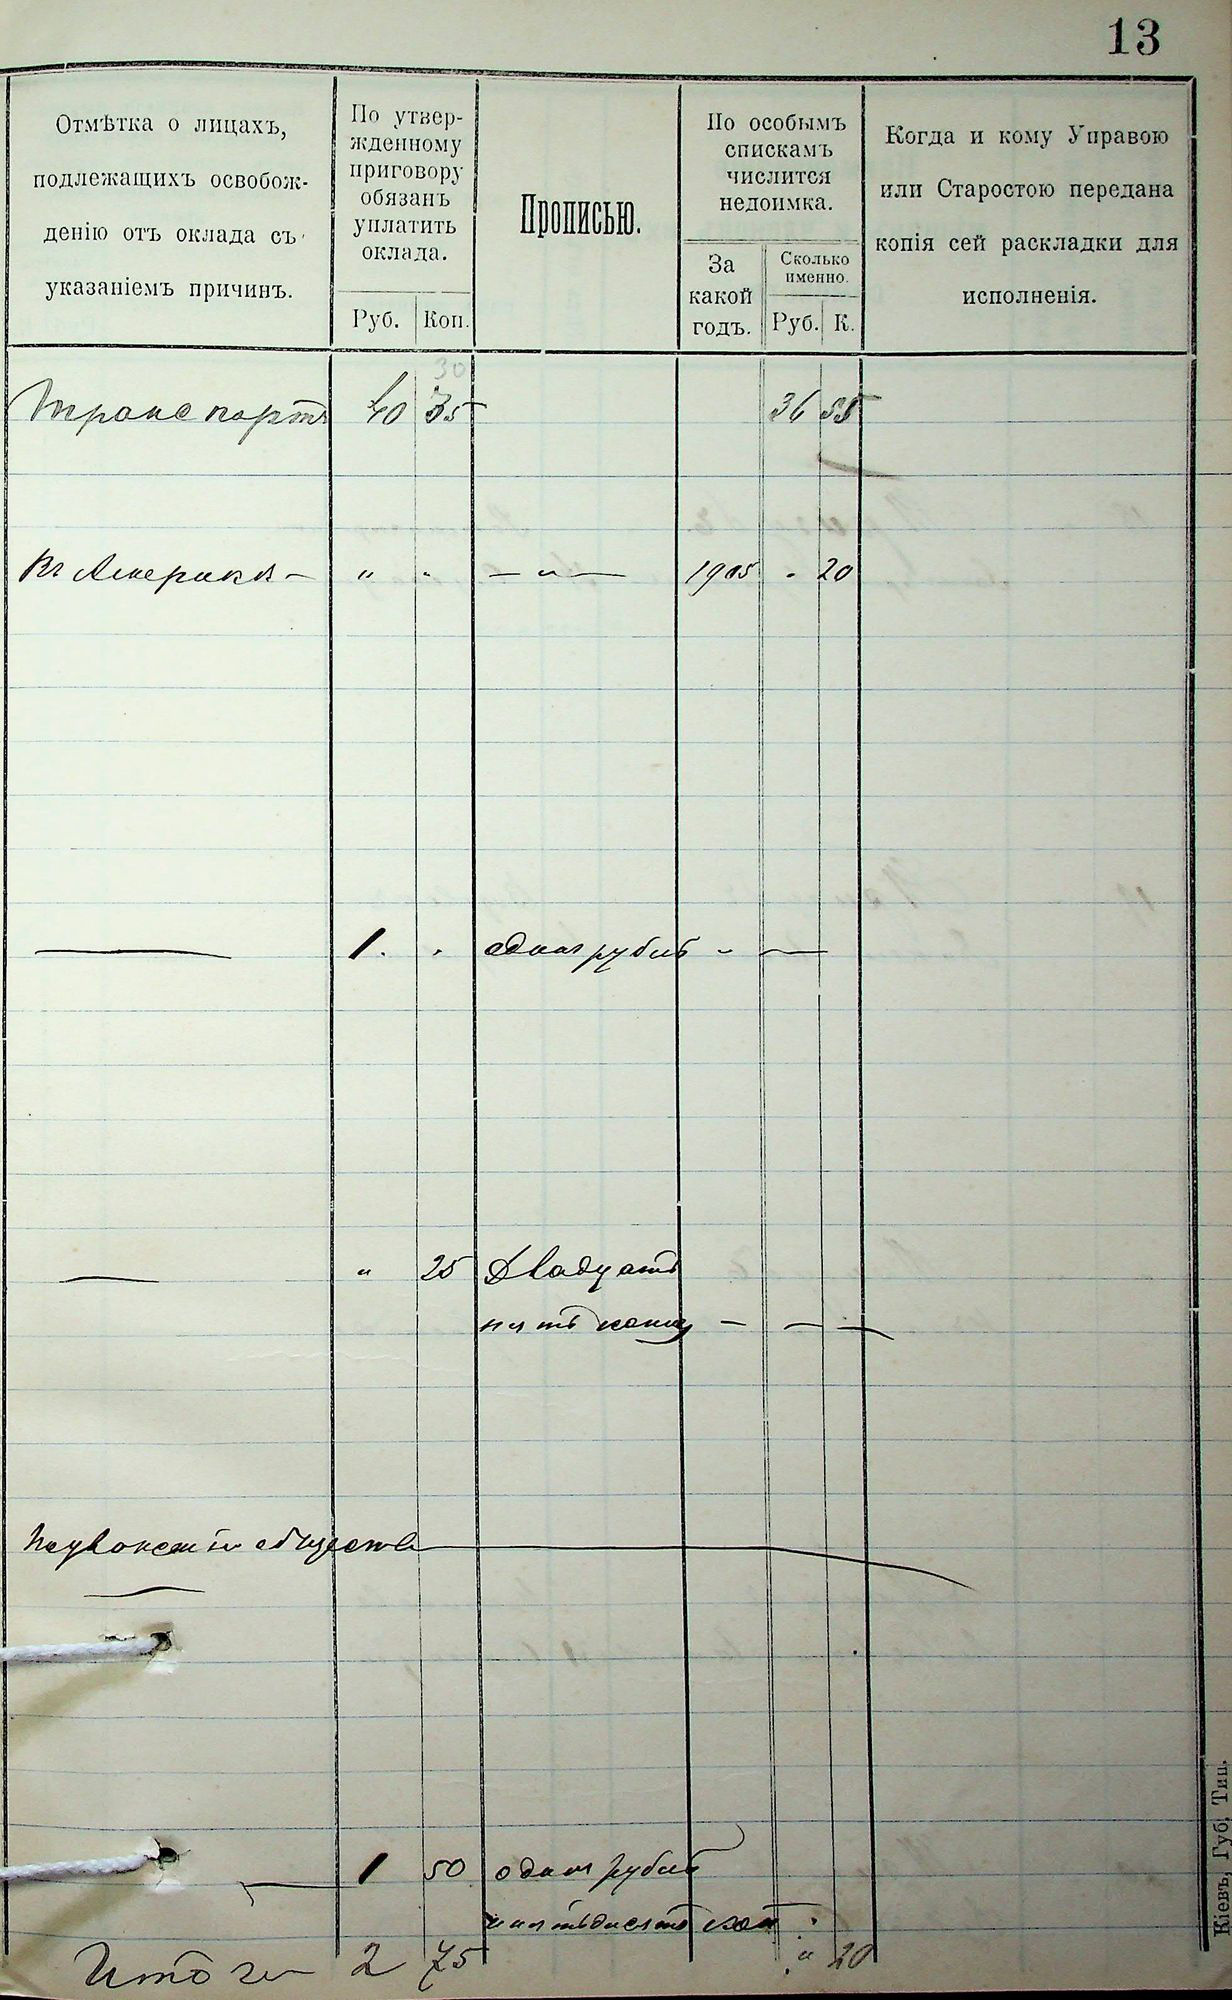 13
Отмѣтка о лицахъ,
подлежащихъ освобож-
денію отъ оклада съ
указаніемъ причинъ.
По утвер-
жденному
приговору
обязанъ
уплатить
оклада.
Руб. Коп.
Прописью.
По особымъ
спискамъ
числится
недоимка.
За
какой
годъ.
Сколько
именно.
Руб. К.
Когда и кому Управою
или Старостою передана
копія сей раскладки для
исполненія.
30
Транспортъ 40 35 36 55
Въ Америкѣ — „ „ — „ — 1905 „ 20
— 1. „ одинъ рубль „ —
— „ 25 Двадцать
пять коп — — —
общества
1 50 одинъ рубль
пятьдесятъ коп
Итого 2 75 „ 20
Кіевъ, Губ. Тип.